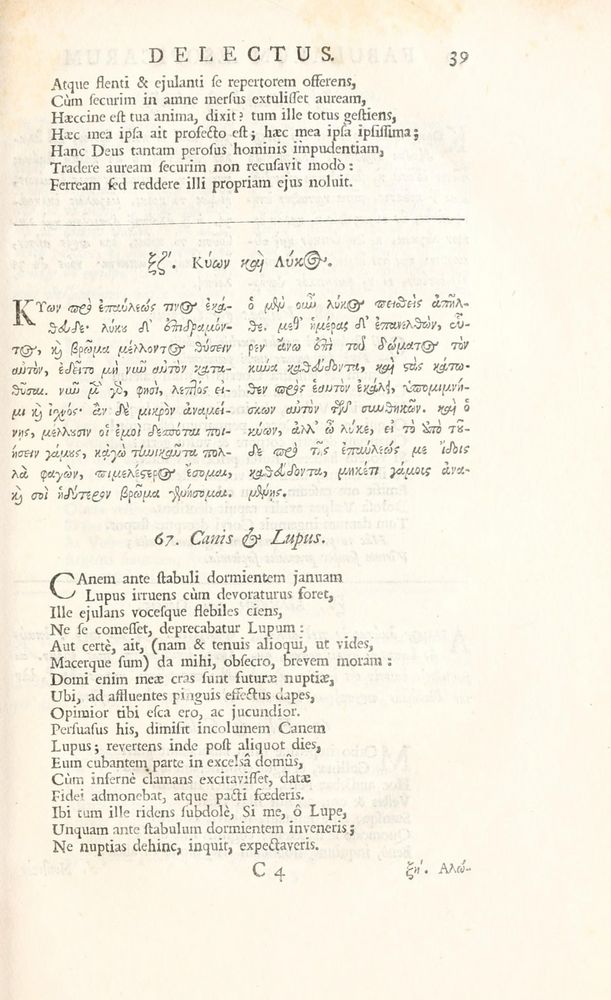 DELECTUS. 39
Atque flenti & ejulanti se repertorem offerens,
Cùm securim in amne mersus extulisset auream,
Hæccine est tua anima, dixit? tum ille totus gestiens,
Hæc mea ipsa ait profecto est; hæc mea ipsa ipsissima;
Hanc Deus tantam perosus hominis impudentiam,
Tradere auream securim non recusavit modò:
Ferream sed reddere illi propriam ejus noluit.
ξζʹ. Κύων καὶ Λύκος.
ΚΥων πρὸ ἐπαύλεώς τινος ἐκά-
θευδε· λύκου δ' ἐπιδραμόν-
τος, καὶ βρῶμα μέλλοντος θύσειν
αὐτὸν, ἐδεῖτο μὴ νῦν αὐτὸν κατα-
θῦσαι. νῦν μὲν γὸ, φησὶ, λεπτός εἰ-
μι καὶ ἰχνός· ἂν δὲ μικρὸν ἀναμεί-
νῃς, μέλλουσιν οἱ ἐμοὶ δεσπόται ποι-
ήσειν γάμους, κἀγὼ τηνικαῦτα πολ-
λὰ φαγὼν, πιμελέστερος ἔσομαι,
καὶ σοὶ ἡδύτερον βρῶμα γενήσομαι.
ὁ μὲν οὖν λύκος πεισθεὶς ἀπῆλ-
θε. μεθ' ἡμέρας δ' ἐπανελθὼν, εὗ-
ρεν ἄνω ἐπὶ τοῦ δώματος τὸν
κύνα καθεύδοντα, καὶ στὰς κάτω-
θεν πρὸς ἑαυτὸν ἐκάλει, ὑπομιμνή-
σκων αὐτὸν τῶν συνθηκῶν. καὶ ὁ
κύων, ἀλλ' ὦ λύκε, εἰ τὸ ἀπὸ τοῦ-
δε πρὸ τῆς ἐπαύλεώς με ἴδοις
καθεύδοντα, μηκέτι γάμους ἀνα-
μένῃς.
67. Canis & Lupus.
CAnem ante stabuli dormientem januam
Lupus irruens cùm devoraturus foret,
Ille ejulans vocesque flebiles ciens,
Ne se comesset, deprecabatur Lupum:
Aut certè, ait, (nam & tenuis alioqui, ut vides,
Macerque sum) da mihi, obsecro, brevem moram:
Domi enim meæ cras sunt futuræ nuptiæ,
Ubi, ad affluentes pinguis effectus dapes,
Opimior tibi esca ero, ac jucundior.
Persuasus his, dimisit incolumem Canem
Lupus; revertens inde post aliquot dies,
Eum cubantem parte in excelsâ domûs,
Cùm infernè clamans excitavisset, datæ
Fidei admonebat, atque pacti fœderis.
Ibi tum ille ridens subdolè, Si me, ô Lupe,
Unquam ante stabulum dormientem inveneris;
Ne nuptias dehinc, inquit, expectaveris.
C 4 ξηʹ. Αλώ-